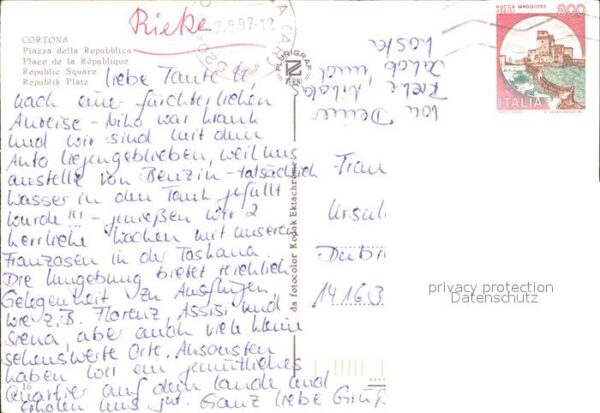 Rieke
2.9.97-12
CORTONA
Piazza della Repubblica
Place de la République
Republic Square
Republik Platz
liebe Tante U,
nach einer fürchterlichen
Anreise - Niko war krank
und wir sind mit dem
Auto liegengeblieben, weil uns
anstelle von Benzin - tatsächlich
Wasser in den Tank gefüllt
wurde !!! - genießen wir 2
herrliche Wochen mit unseren
Franzosen in der Toskana.
Die Umgebung bietet reichlich
Gelegenheit zu Ausflügen
wie z.B. Florenz, Assisi und
Siena, aber auch viele kleine
sehenswerte Orte. Ansonsten
haben wir ein gemütliches
Quartier auf dem Lande und
erholen uns gut. Ganz liebe Grüße
16
von Deiner
Rieke, Nikolas
Jakob und
da fotocolor Kodak Ektachrome
ROCCA MAGGIORE
ASSISI
800
ITALIA
Frau
Ursul
Dubri
14163
privacy protection
Datenschutz